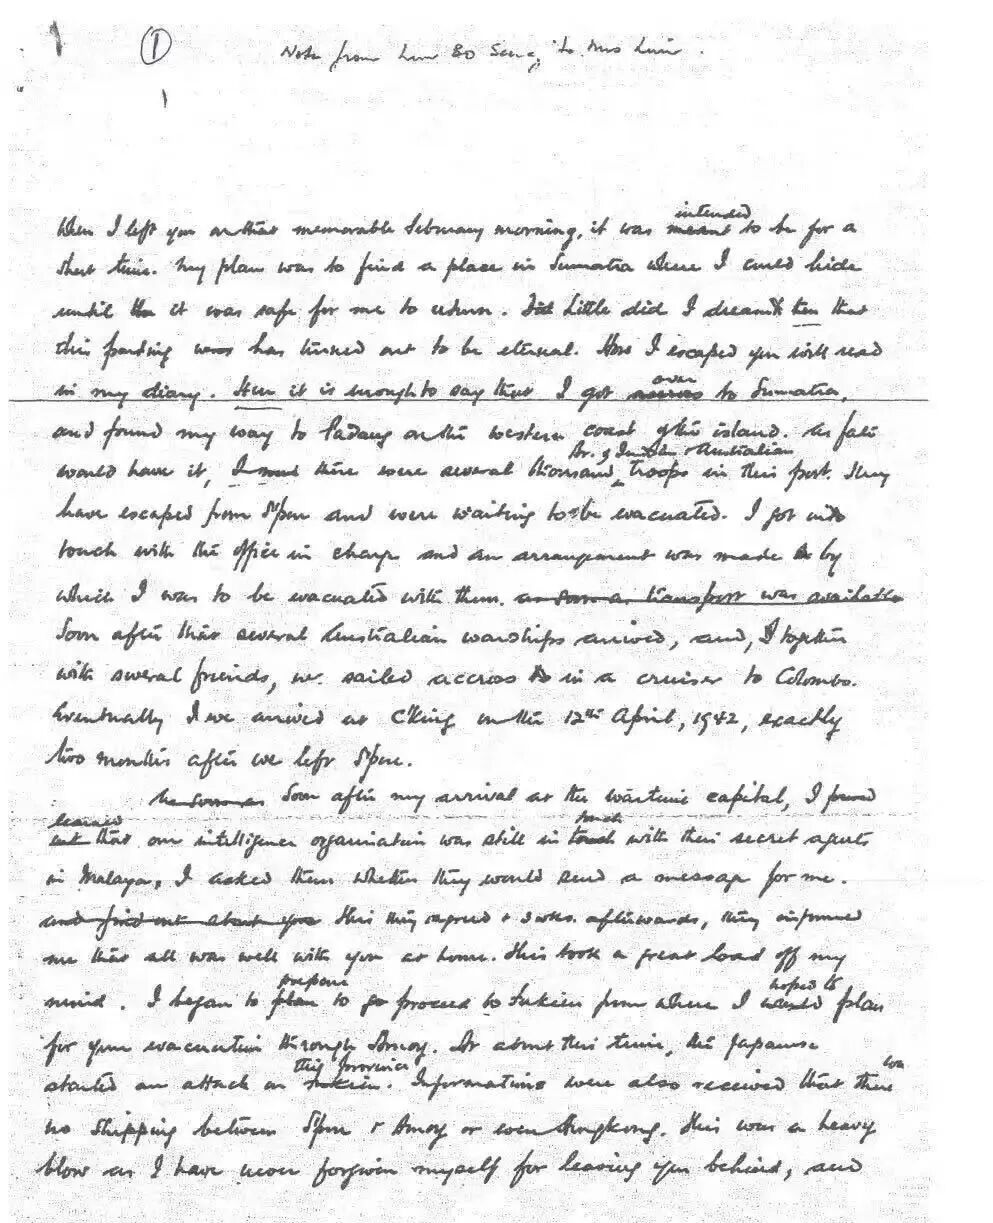 ①
Note from Lim Bo Seng, to Mrs Lim.
intended
When I left you on that memorable February morning, it was meant to be for a
short time. My plan was to find a place in Sumatra where I could hide
until the it was safe for me to return. Little did I dreamt then that
this parting was has turned out to be eternal. How I escaped you will read
over
in my diary. Here it is enough to say that I got across to Sumatra,
and found my way to Padang on the western coast of the island. As fate
Br. & Indian & Australian
would have it, there were several thousand troops in this port. They
have escaped from S'pore and were waiting to be evacuated. I got into
touch with the office in charge and an arrangement was made by
which I was to be evacuated with them. as soon as transport was available
Soon after that several Australian warships arrived, and, I together
with several friends, we sailed accross to in a cruiser to Colombo.
Eventually I we arrived at C'King on the 12th April, 1942, exactly
two months after we left S'pore.
Soon after my arrival at the wartime capital, I found
learned touch
out that our intelligence organisation was still in touch with their secret agents
in Malaya, I asked them whether they would send a message for me.
and find out about you This they agreed & 3 wks. afterwards, they informed
me that all was well with you at home. This took a great load off my
prepare hoped to
mind. I began to plan to go proceed to Fukien from where I would plan
for your evacuation through Amoy. At about this time, the Japanese
this province was
started an attack on Fukien. Informations were also received that there
no shipping between S'pore & Amoy or even Hongkong. This was a heavy
blow as I have never forgiven myself for leaving you behind, and